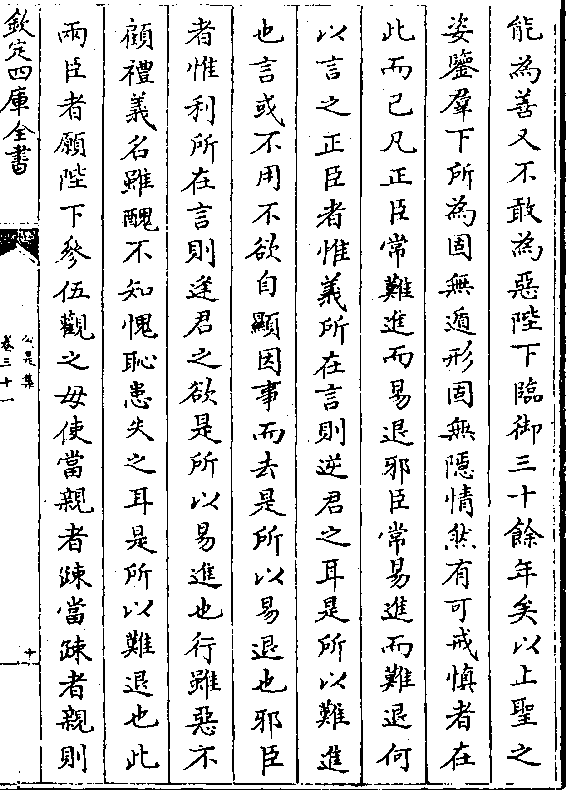 能為善又不敢為惡陛下臨御三十餘年矣以上聖之
姿鑒羣下所為固無遁形固無隱情然有可戒慎者在
此而已凡正臣常難進而易退邪臣常易進而難退何
以言之正臣者惟義所在言則逆君之耳是所以難進
也言或不用不欲自顯因事而去是所以易退也邪臣
者惟利所在言則逢君之欲是所以易進也行雖惡不
顧禮義名雖醜不知愧恥患失之耳是所以難退也此
兩臣者願陛下參伍觀之毋使當親者踈當踈者親則
欽定四庫全書
公是集
卷三十一
十